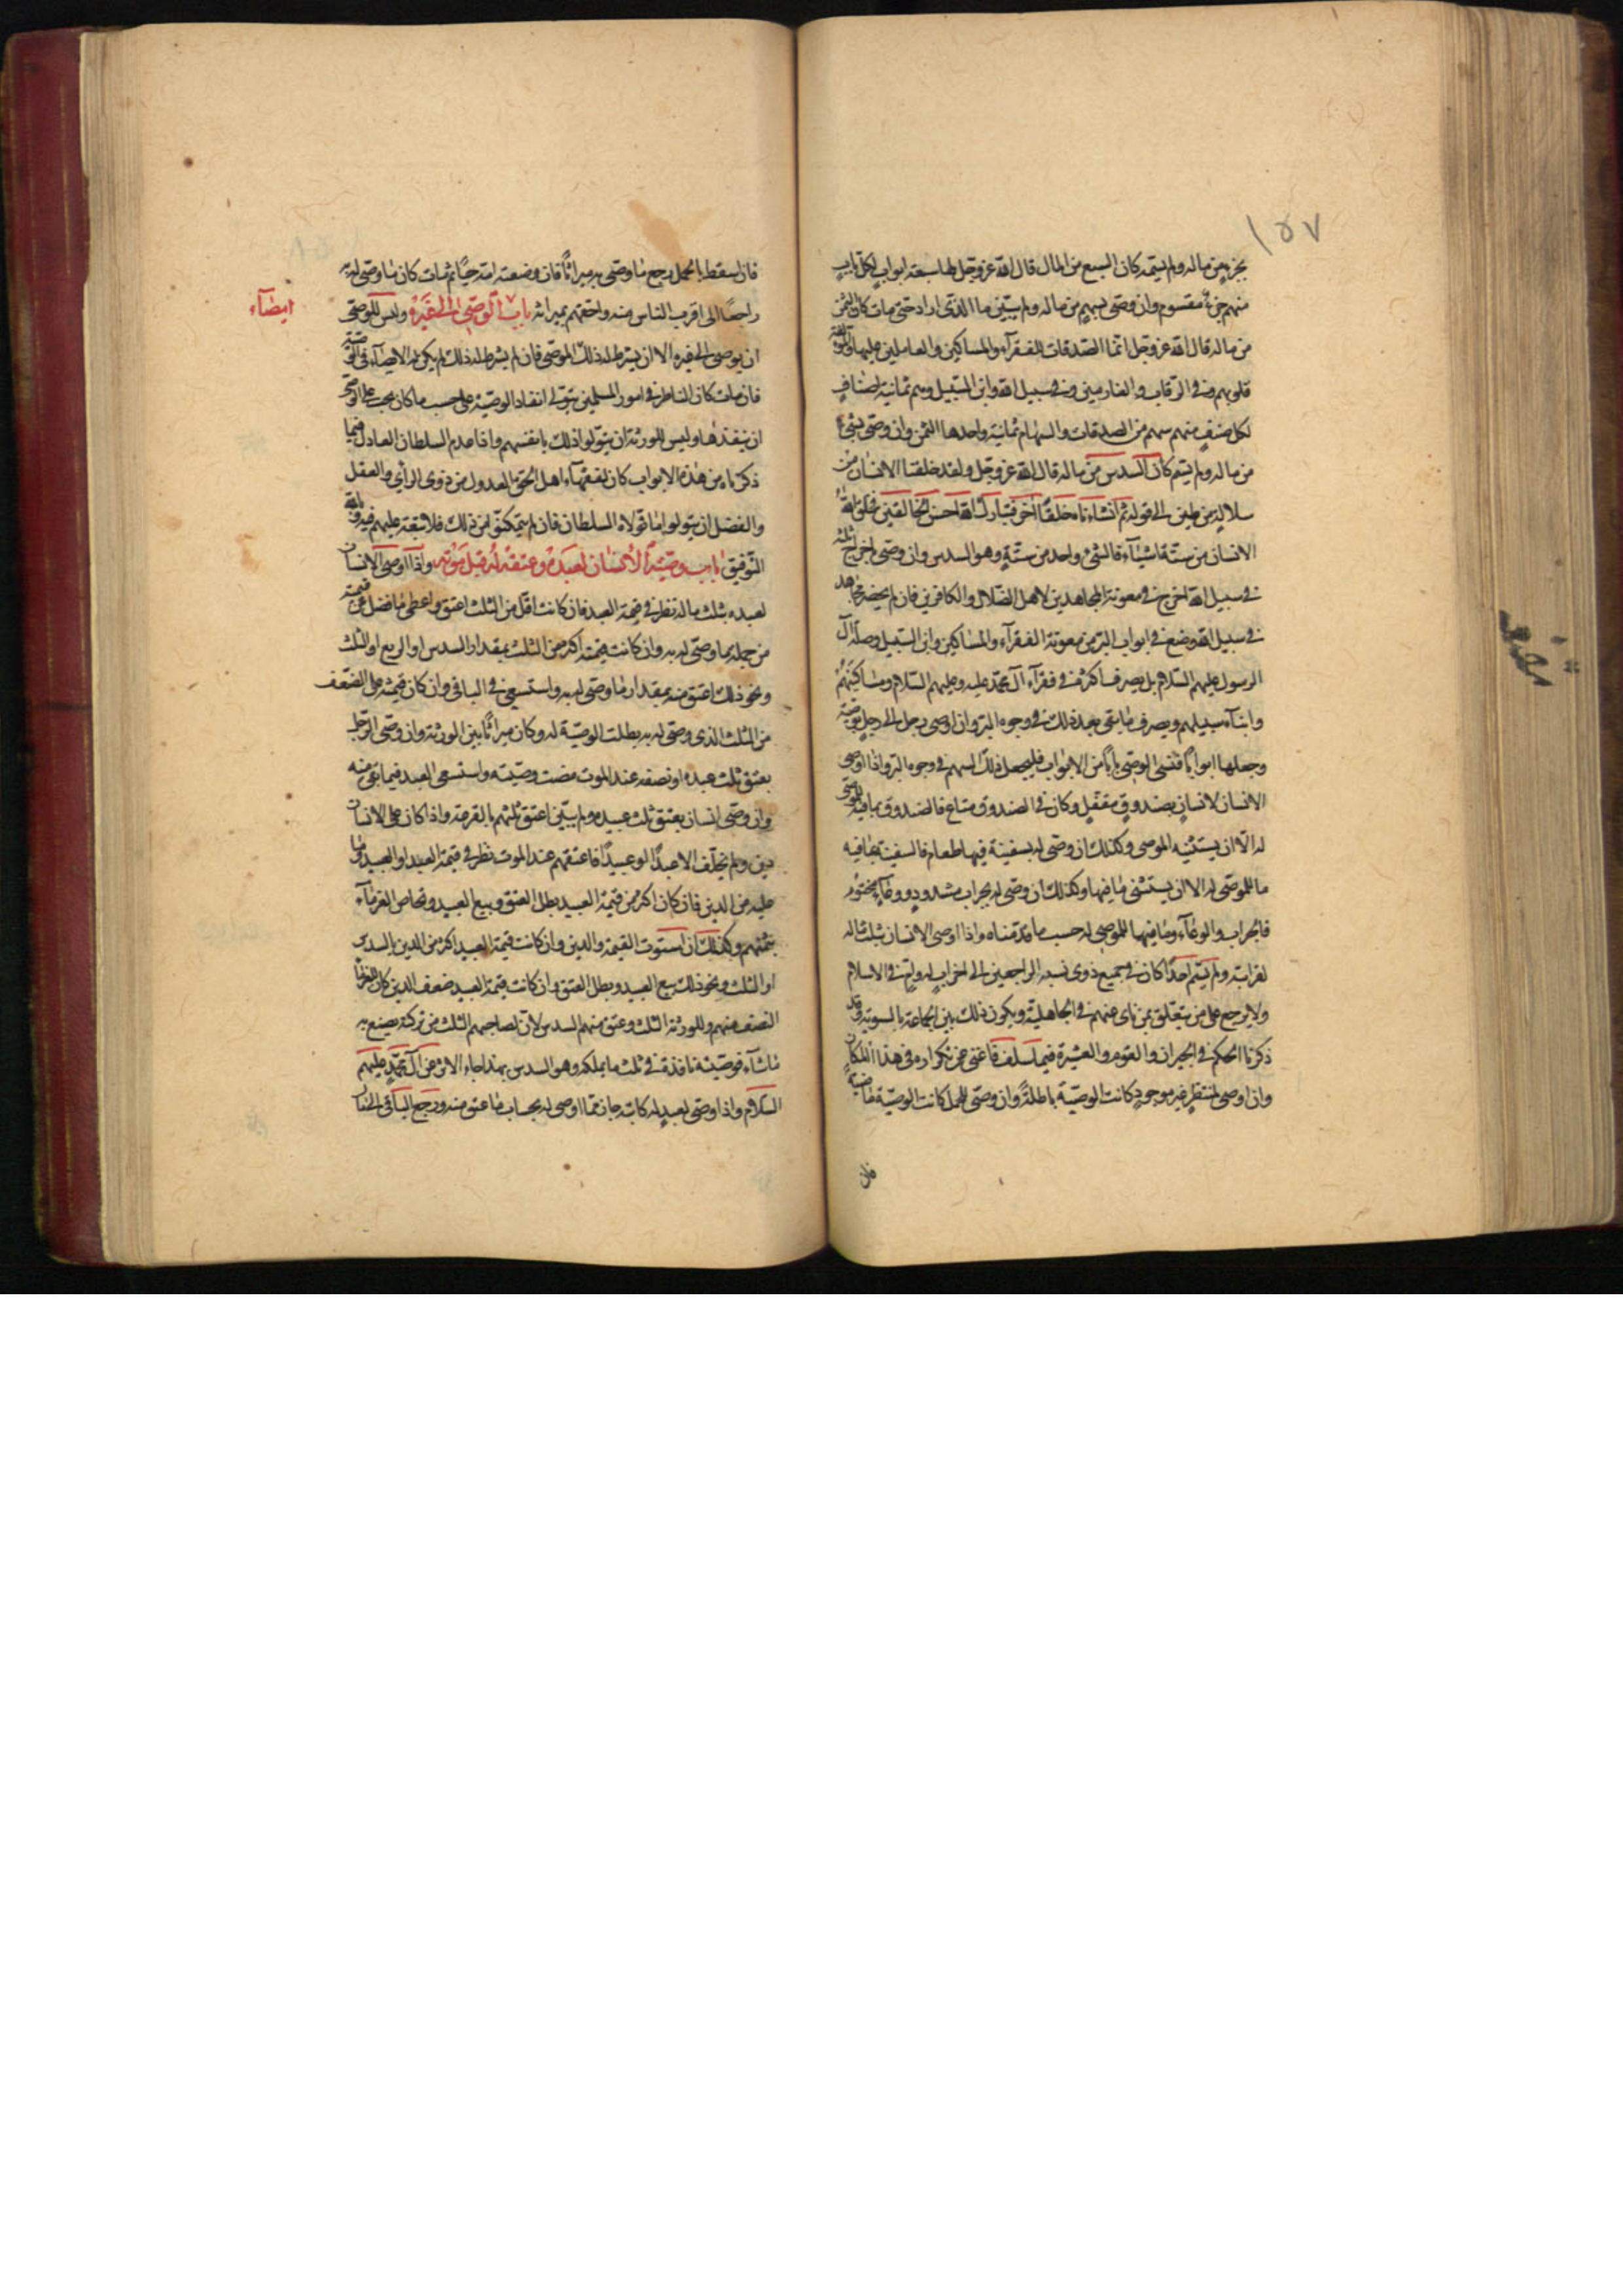 ١٥٧
بجزء من ماله ولم يسمه كان السبع من المال قال الله عز وجل لها سبعة ابواب لكل باب
منهم جزء مقسوم وان وصّى بسهم من ماله ولم يبيّن ما الذي اراد حتى مات كان الثمن
من ماله قال الله عز وجل انما الصدقات للفقرآء والمساكين والعاملين عليها والمؤلفة
قلوبهم وفي الرقاب والغارمين وفي سبيل الله وابن السبيل وهم ثمانية اصناف
لكل صنف منهم سهم من الصدقات والسهام ثمانية واحدها الثمن وان وصّى بشيء
من ماله ولم يسم كان السدس من ماله قال الله عز وجل ولقد خلقنا الانسان من
سلالة من طين الى قوله ثم انشاناه خلقًا اخر فتبارك الله احسن الخالقين فخلق الله
الانسان من ستة اشيآء فالشيء واحد من ستة وهو السدس وان وصّى باخراج ثلثه
في سبيل الله اخرج في معونة المجاهدين لاهل الضلال والكافرين فان لم يحضر مجاهد
في سبيل الله وضع في ابواب البر من معونة الفقرآء والمساكين وابن السبيل وصلة آل
الرسول عليهم السلام بل يصرف اكثره في فقرآء آل محمد عليه وعليهم السلام ومساكينهم
وابنآء سبيلهم ويصرف ما بقي بعد ذلك في وجوه البر وان اوصى رجل الى رجل بوصية
وجعلها ابوابًا فنسى الوصي بابًا من الابواب فليجعل ذلك السهم في وجوه البر واذا اوصى
الانسان لانسان بصندوق مقفل وكان في الصندوق متاع فالصندوق بما فيه للموصى
له الّا ان يستثنيه الموصى وكذلك ان وصّى له بسفينة فيها طعام فالسفينة بما فيه
ما للموصى له الا ان يستثنى ما فيها وكذلك ان وصّى له بجراب مشدود ووعآء مختوم
فالجراب والوعآء وما فيهما للموصى له حسب ما قدمناه واذا اوصى الانسان بثلث ماله
لقرابته ولم يسم احدًا كان في جميع ذوى نسبه الراجعين الى اخر اب له وام في الاسلام
ولا يرجع على من يتعلق بمن ناى عنهم في الجاهلية ويكون ذلك بين الجماعة بالسوية وقد
ذكرنا الحكم في الجيران والقوم والعشيرة فيما سلف فاغنى عن تكراره في هذا المكان
وان اوصى لمنتظر غير موجود كانت الوصية باطلةً وان وصّى للحمل كانت الوصية ماضية
فان
فان اسقط الحمل رجع ما وصّى به ميراثًا فان وضعته امه حيًا ثم مات كان ما وصّى له به
راجعًا الى اقرب الناس منه واحقهم بميراثه باب الوصي الى غيره وليس للوصي
امضآء
ان يوصى الى غيره الا ان يشترط له ذلك الموصى فان لم يشرط له ذلك لم يكن له الايصآء في الوصية
فان مات كان الناظر في امور المسلمين يتولى انفاد الوصية على حسب ما كان يجب على الوصي
ان ينفذها وليس للورثة ان يتولوا ذلك بانفسهم واذا عدم السلطان العادل فيما
ذكرناه من هذه الابواب كان لفقهآء اهل الحق العدول من ذوى الرأي والعقل
والفضل ان يتولوا ما تولاه السلطان فان لم يتمكنوا من ذلك فلا تبعة عليهم فيه وبالله
التوفيق باب وصية الانسان لعبده وعتقه له قبل موته واذا اوصى الانسان
لعبده بثلث ماله نظر في قيمة العبد فان كانت اقل من الثلث اعتق واعطى ما فضل عن قيمته
من جملة ما وصّى له به وان كانت قيمته اكثر من الثلث بمقدار السدس او الربع او الثلث
ونحو ذلك اعتق منه بمقدار ما وصّى له به واستسعى في الباقي وان كان قيمته على الضعف
من الثلث الذى وصّى له به بطلت الوصية له وكان ميراثًا بين الورثة وان وصّى الرجل
بعتق ثلث عبده او نصفه عند الموت مضت وصيته واستسعى العبد فيما بقى منه
وان وصّى انسان بعتق ثلث عبيده ولم يبيّن اعتق ثلثهم بالقرعة واذا كان على الانسان
دين ولم يخلّف الا عبدًا او عبيدًا فاعتقهم عند الموت نظر في قيمة العبد او العبيد وما
عليه من الدين فان كان اكثر من قيمة العبيد بطل العتق وبيع العبيد وتحاص الغرمآء
بثمنهم وكذلك ان استوت القيمة والدين وان كانت قيمة العبيد اكثر من الدين بالسدس
او الثلث ونحو ذلك بيع العبيد وبطل العتق وان كانت قيمة العبيد ضعف الدين كان للغرمآء
النصف منهم وللورثة الثلث وعتق منهم السدس لان لصاحبهم الثلث من تركته يصنع به
ما شآء فوصيته نافذة في ثلث ما يملكه وهو السدس بهذا جاء الاثر عن آل محمد عليهم
السلام واذا اوصى لعبد له كاتبه جاز مما اوصى له بحساب ما عتق منه ورجع الباقي الى